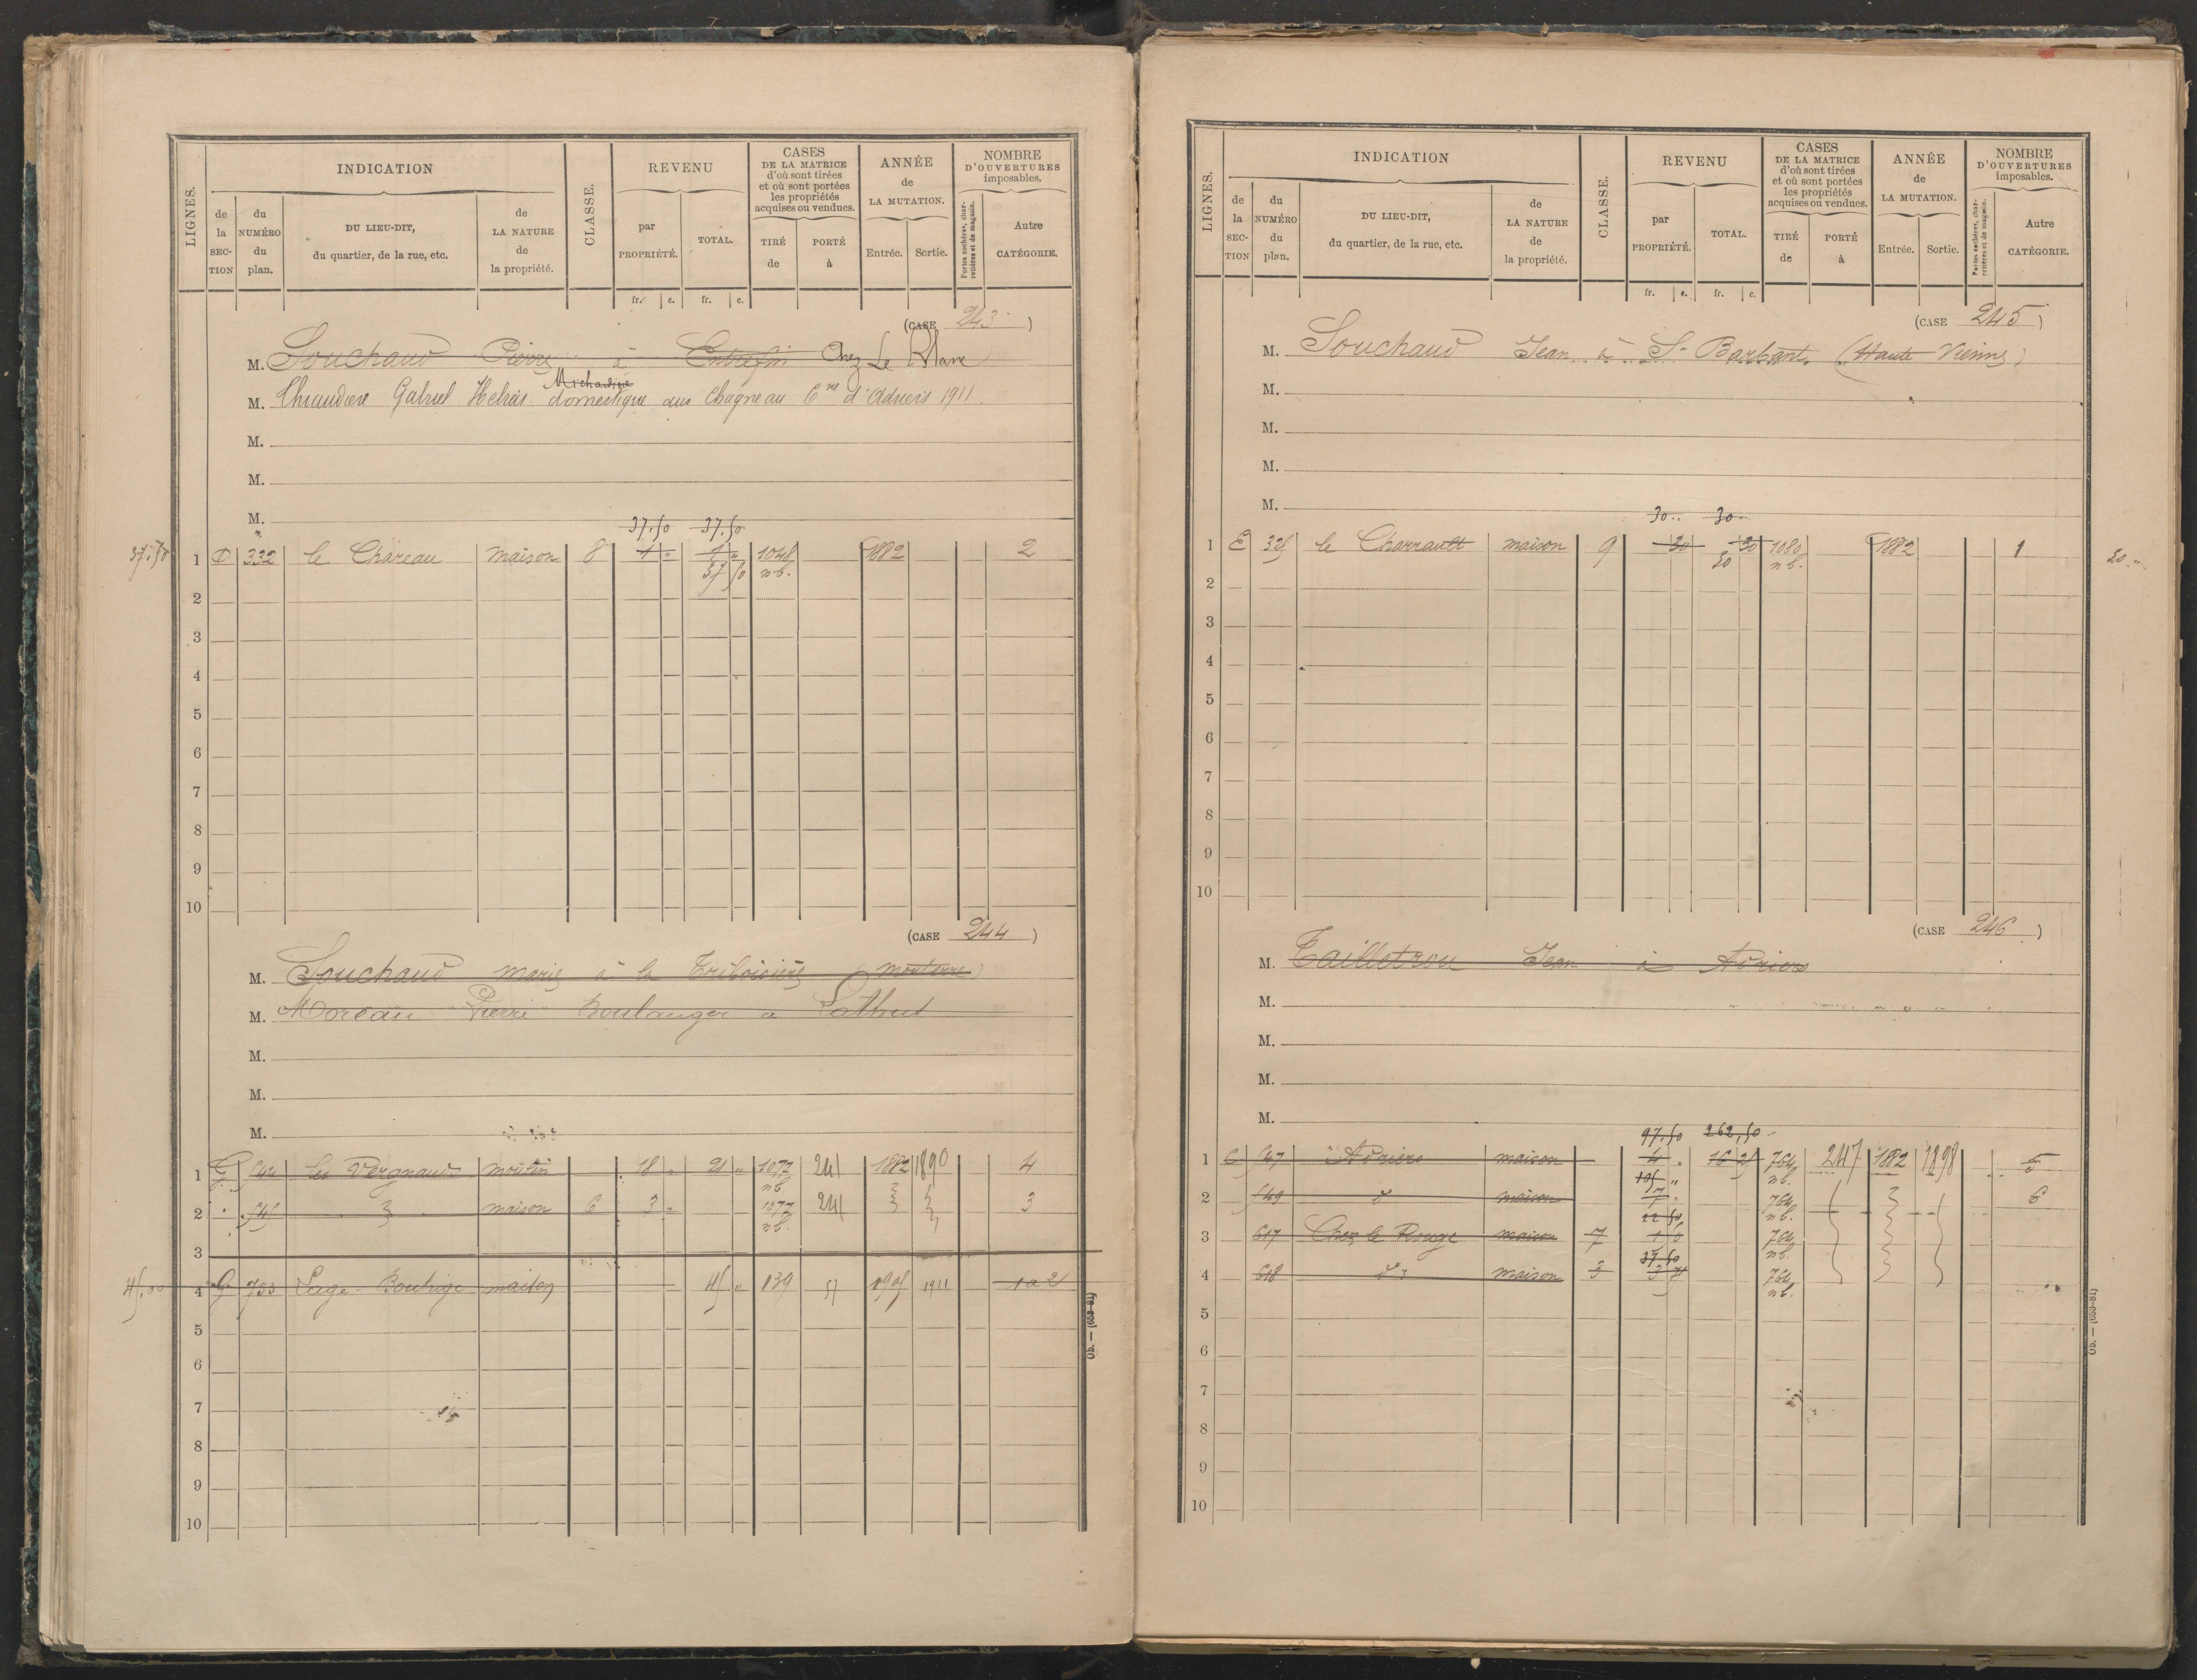 LIGNES.
INDICATION
de la SECTION
du NUMÉRO du plan.
DU LIEU-DIT, du quartier, de la rue, etc.
de LA NATURE de la propriété.
CLASSE.
REVENU
par PROPRIÉTÉ.
TOTAL.
CASES DE LA MATRICE d'où sont tirées et où sont portées les propriétés acquises ou vendues.
TIRÉ de
PORTÉ à
ANNÉE de LA MUTATION.
Entrée.
Sortie.
NOMBRE D'OUVERTURES imposables.
Portes cochères, charretières et de magasin.
Autre CATÉGORIE.
fr. c. fr. c.
(CASE 243)
M. Souchaud Pierre à Entrefin Chez Le Blanc
M. Gabriel domestique aux Chagneau Cne d'Adriers 1911
M.
M.
M.
37.50 37.50
37.50 1 D 332 le Chareau maison 8 1 " 1 " 1048 1882 2
37 50 nb.
2
3
4
5
6
7
8
9
10
(CASE 244)
M. Souchaud marie à la Triboisière (mouterre)
M. Moreau Pierre Boulanger a Lathus
M.
M.
M.
1 G 544 les Vergnauds moulin 18 " 21 " 1077 241 1882 1890 4
nb.
2 " 545 maison 6 3 " 1077 241 3
nb.
3
45.00 4 G 753 maison 45 " 139 57 1905 1911 1 a 2
5
6
7
8
9
10
Ob. — (653-81)
LIGNES.
INDICATION
de la SECTION
du NUMÉRO du plan.
DU LIEU-DIT, du quartier, de la rue, etc.
de LA NATURE de la propriété.
CLASSE.
REVENU
par PROPRIÉTÉ.
TOTAL.
CASES DE LA MATRICE d'où sont tirées et où sont portées les propriétés acquises ou vendues.
TIRÉ de
PORTÉ à
ANNÉE de LA MUTATION.
Entrée.
Sortie.
NOMBRE D'OUVERTURES imposables.
Portes cochères, charretières et de magasin.
Autre CATÉGORIE.
fr. c. fr. c.
(CASE 245)
M. Souchaud Jean à St Barbant (Haute Vienne)
M.
M.
M.
M.
30.. 30..
1 E 325 le Charrault maison 9 30 30 1080 1882 1
nb.
2
3
4
5
6
7
8
9
10
(CASE 246)
M. Tailletrou Jean à Adriers
M.
M.
M.
M.
97.50 262,50
1 C 547 Adriers maison 4 " 16 21 764 247 1882 1898 5
105 " nb.
2 549 d° maison 7 " 764 6
22 50 nb.
3 617 Chez le Rouge maison 7 764
37.50 nb.
4 618 d° maison 3 3 764
nb.
5
6
7
8
9
10
Ob. — (653-81)